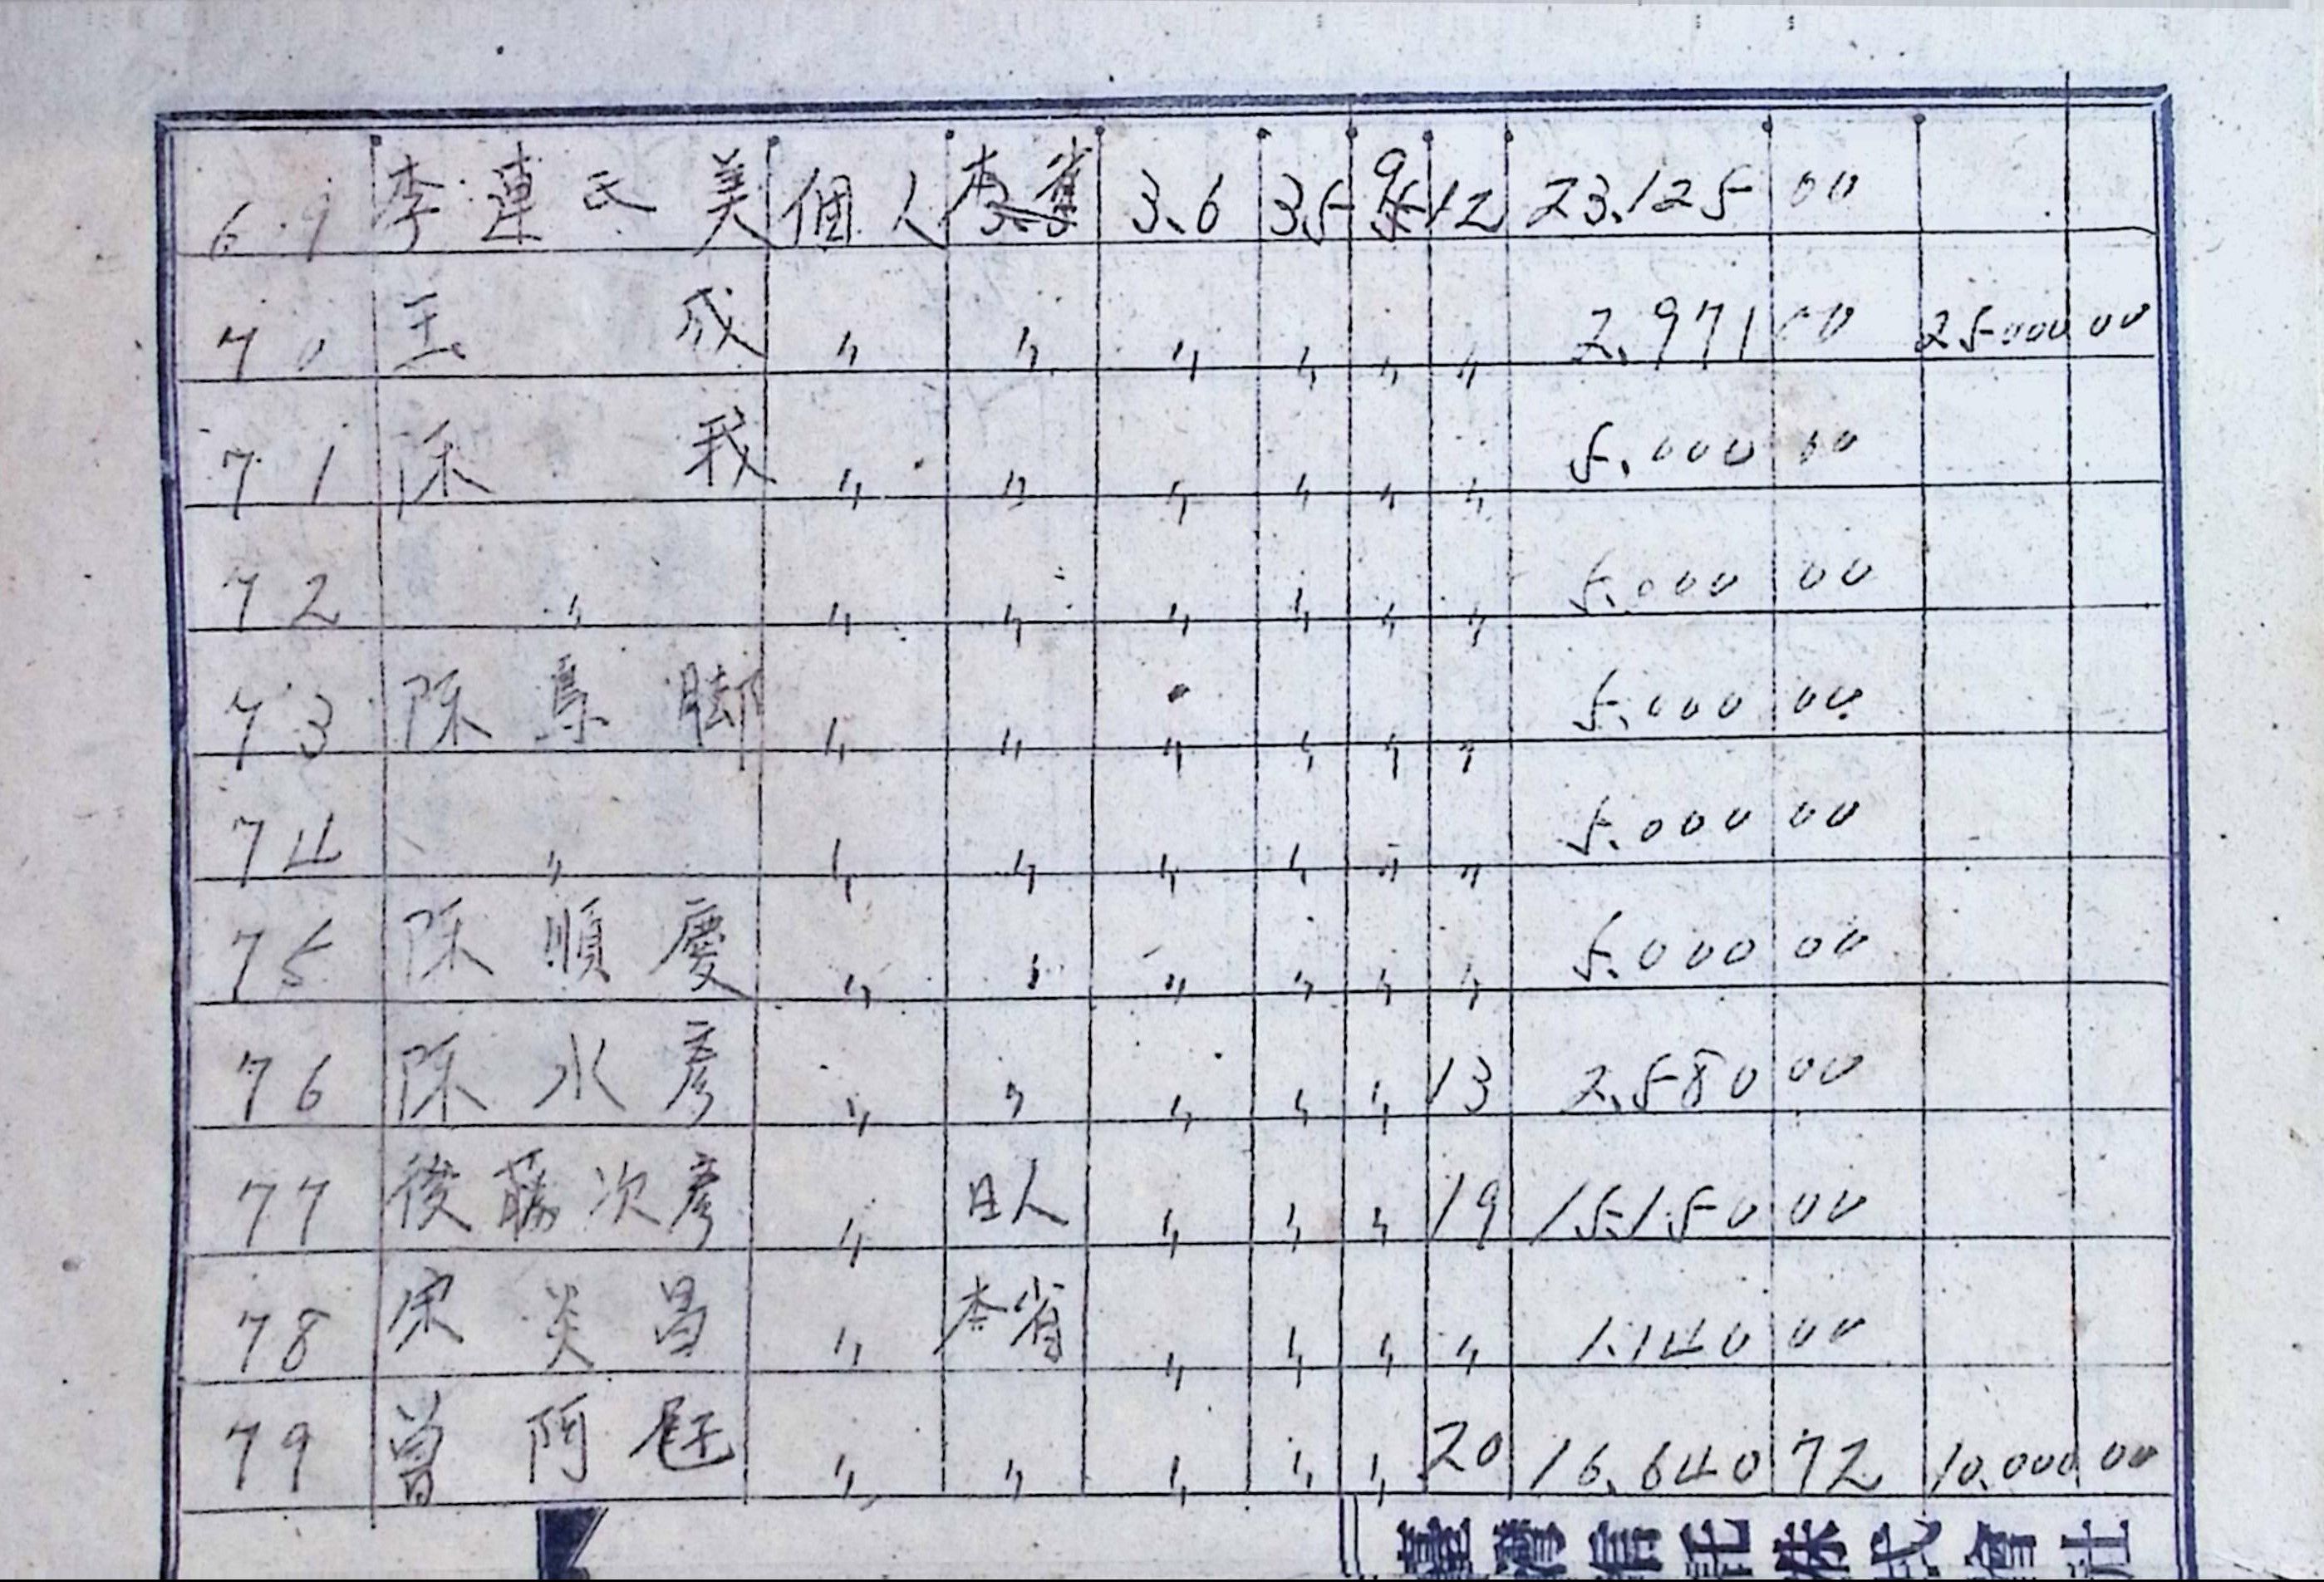 69 李連氏美 個人 本省 3.6 35 9 12 23.125 00
70 王 成 〃 〃 〃 〃 〃 〃 2.971 00 25.000 00
71 陳 我 〃 〃 〃 〃 〃 〃 5.000 00
72 〃 〃 〃 〃 〃 〃 〃 5.000 00
73 陳 脚 〃 〃 〃 〃 〃 〃 5.000 00
74 〃 〃 〃 〃 〃 〃 〃 5.000 00
75 陳順慶 〃 〃 〃 〃 〃 〃 5.000 00
76 陳水彦 〃 〃 〃 〃 〃 13 2.580 00
77 後藤次彦 〃 日人 〃 〃 〃 19 15.150 00
78 宋炎昌 〃 本省 〃 〃 〃 〃 1.140 00
79 曾阿 〃 〃 〃 〃 〃 20 16.640 72 10.000 00
臺灣信託株式會社